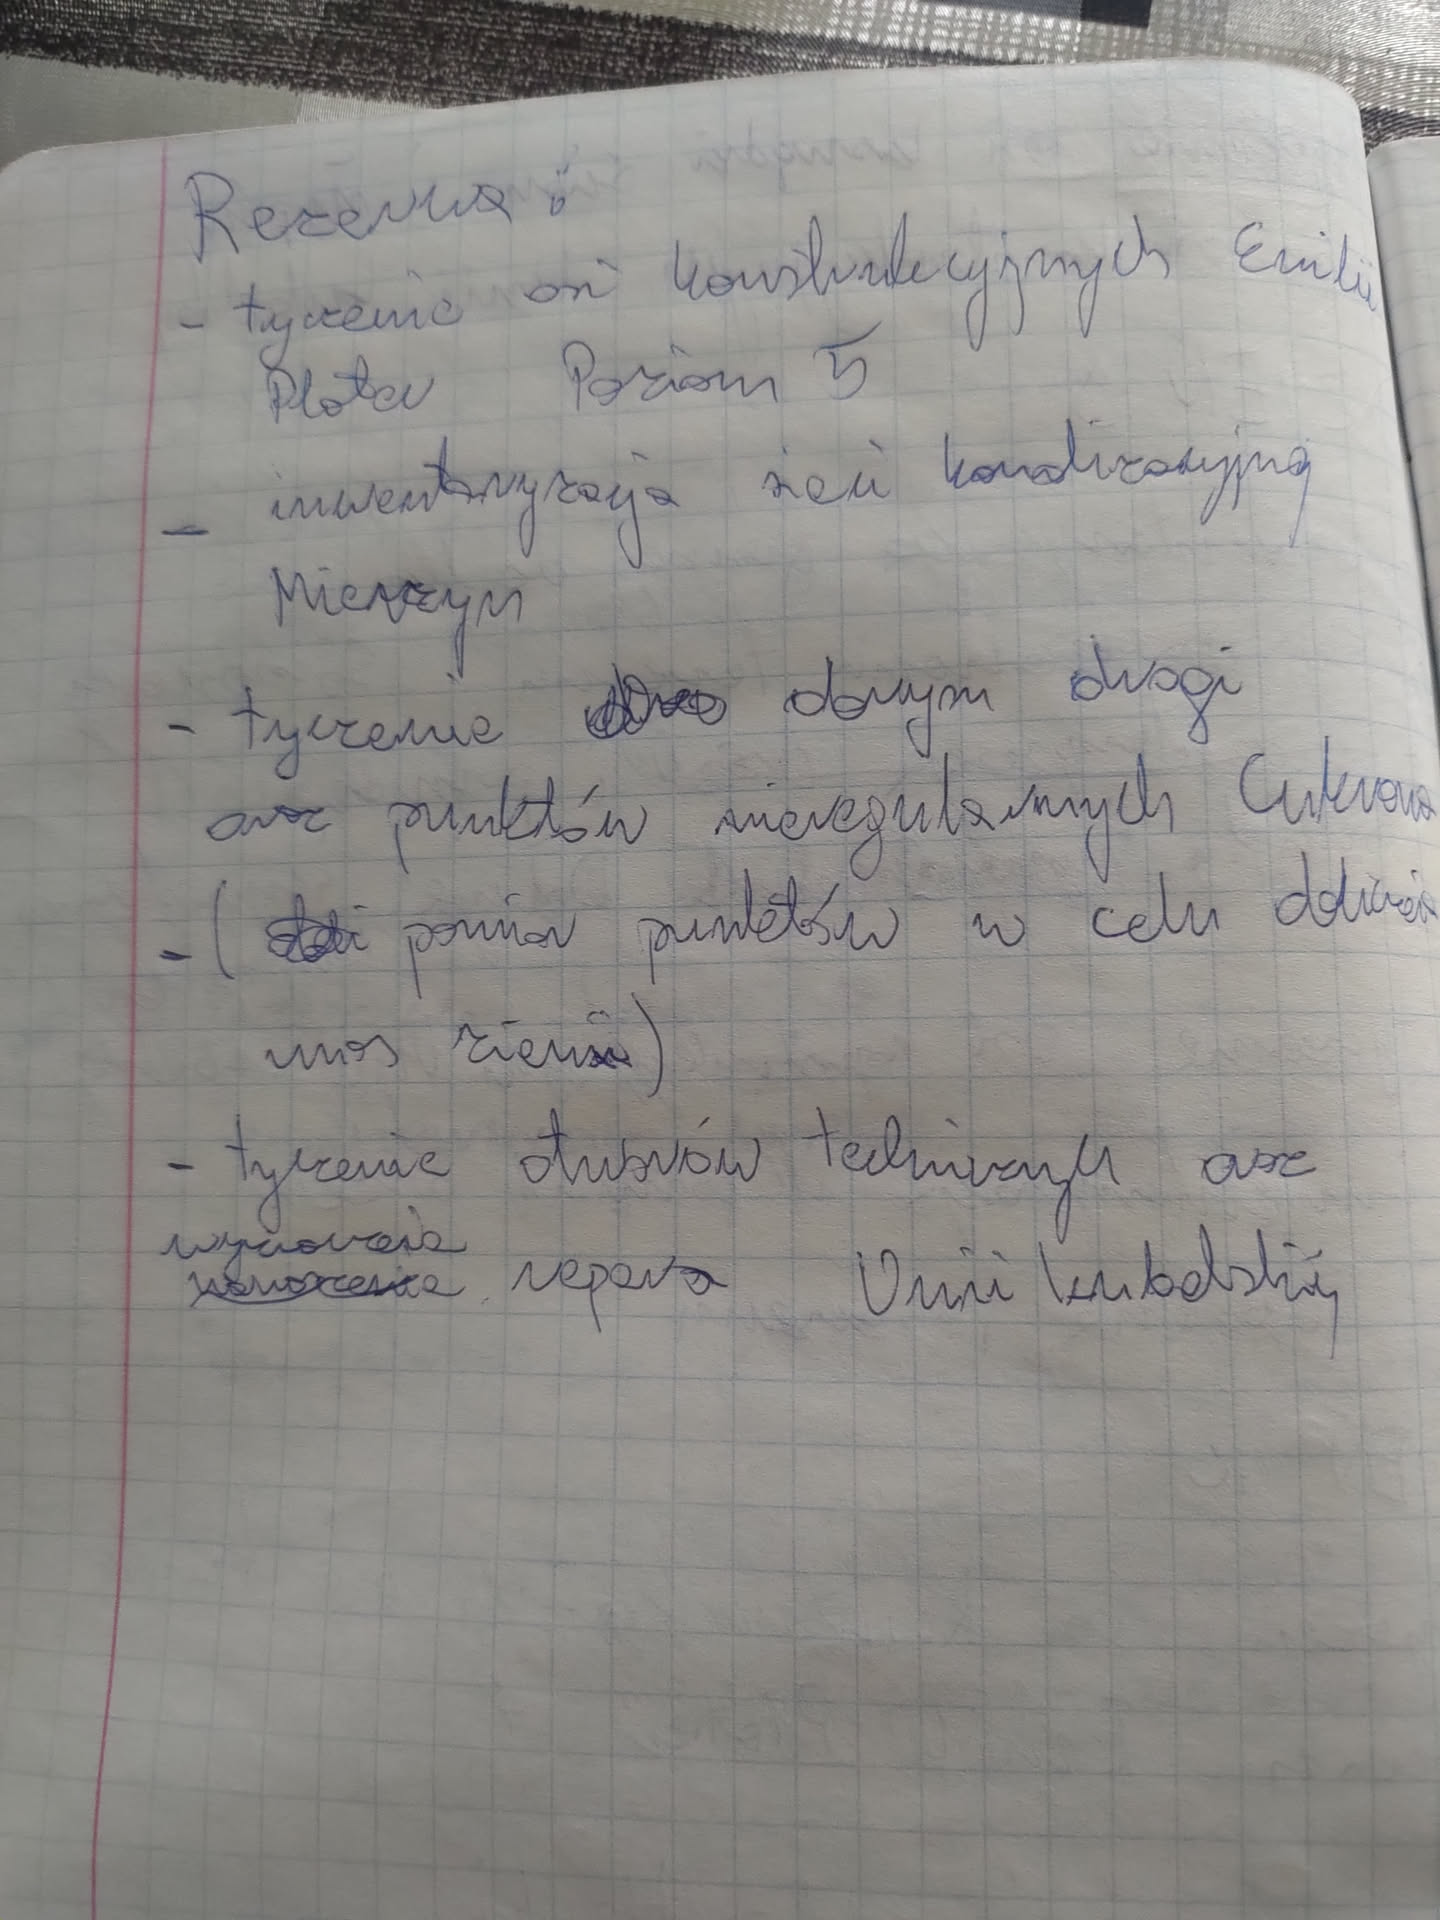 Rezerwa:
- tyczenie osi konstrukcyjnych Emilii
Plater Poziom 5
- inwentaryzacja sieci kanalizacyjną
Mierzyn
- tyczenie danym drogi
oraz punktów nieregularnych Cukrowa
- ( pomiar punktów w celu obliczeia
mas ziemi)
- tyczenie otworów technicznych oraz
wyniesienie repera Unii Lubelskiej